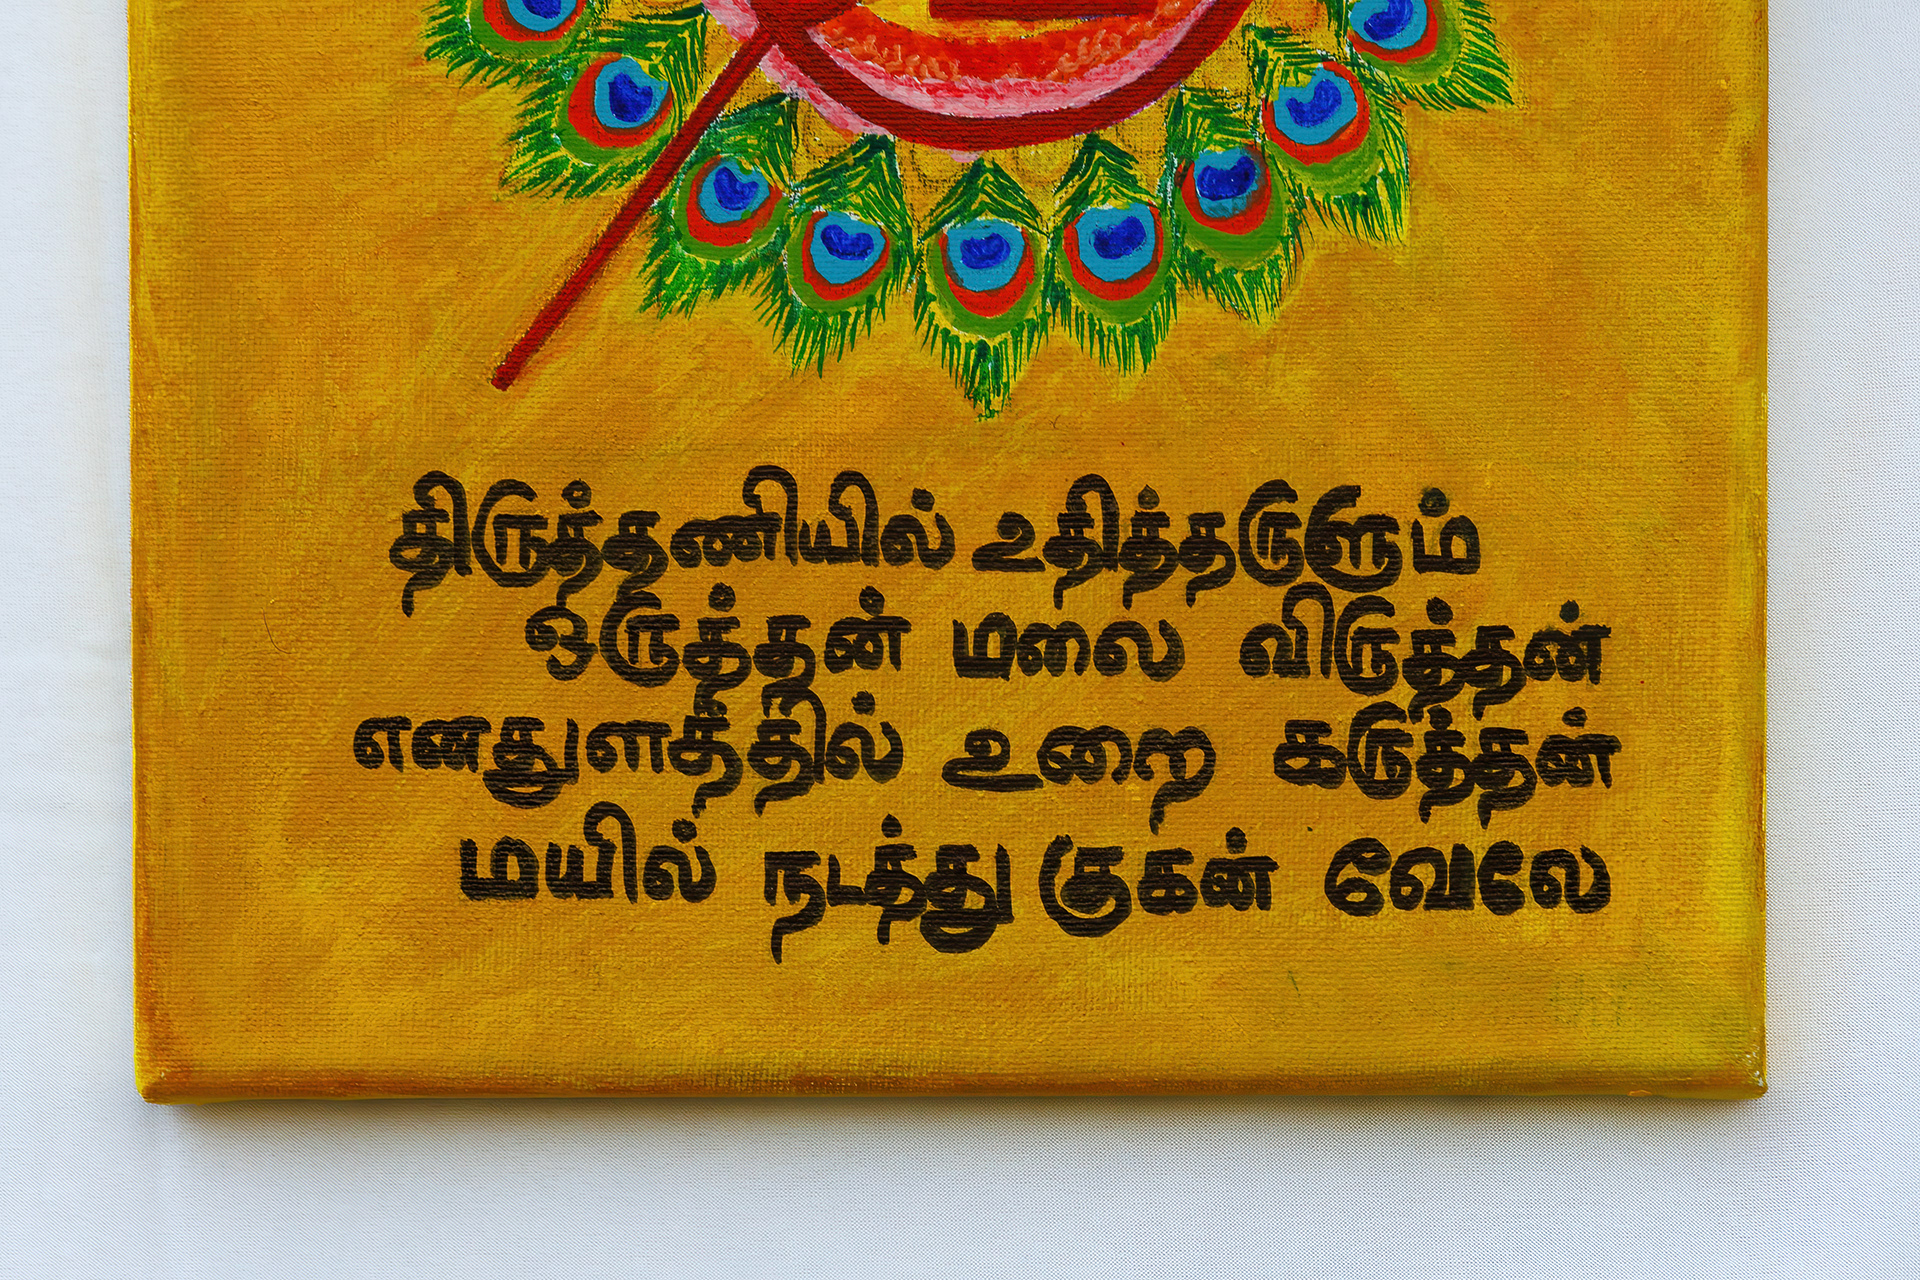 திருத்தணியில் உதித்தருளும்
ஒருத்தன் மலை விருத்தன்
எனதுளத்தில் உறை கருத்தன்
மயில் நடத்து குகன் வேலே